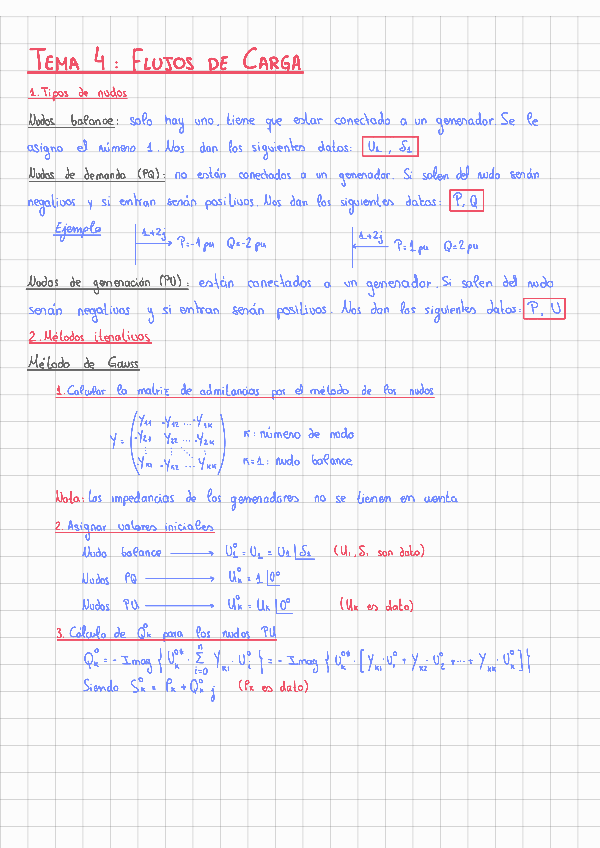 TEMA 4: FLUJOS DE CARGA
1. Tipos de nudos
Nudos balance: solo hay uno, tiene que estar conectado a un generador Se le
asigna el número 1. Nos dan los siguientes datos: U₁, δ₁
Nudos de demanda (PQ): no están conectados a un generador. Si salen del nudo serán
negativos y si entran serán positivos. Nos dan los siguientes datos: P, Q
Ejemplo 1+2j P=-1 pu Q=-2 pu 1+2j P=1 pu Q=2 pu
Nudos de generación (PU): están conectados a un generador. Si salen del nudo
serán negativos y si entran serán positivos. Nos dan los siguientes datos: P, U
2. Métodos iterativos
Método de Gauss
1. Calcular la matriz de admitancias por el método de los nudos
Y = ( Y₁₁ -Y₁₂ ... -Y₁ₖ
-Y₂₁ Y₂₂ ... -Y₂ₖ
-Yₖ₁ -Yₖ₂ ... Yₖₖ )
K: número de nudo
K=1: nudo balance
Nota: Las impedancias de los generadores no se tienen en cuenta
2. Asignar valores iniciales
Nudo balance → U₁⁰ = U₁ = U₁ |δ₁ (U₁, δ₁ son dato)
Nudos PQ → Uₖ⁰ = 1 |0°
Nudos PU → Uₖ⁰ = Uₖ |0° (Uₖ es dato)
3. Cálculo de Qₖ⁰ para los nudos PU
Qₖ⁰ = - Imag { Uₖ⁰* · Σ(i=0, n) Yₖᵢ · Uᵢ⁰ } = - Imag { Uₖ⁰* · [Yₖ₁ · U₁⁰ + Yₖ₂ · U₂⁰ + ... + Yₖₖ · Uₖ⁰] }
Siendo Sₖ⁰ = Pₖ + Qₖ⁰ j (Pₖ es dato)